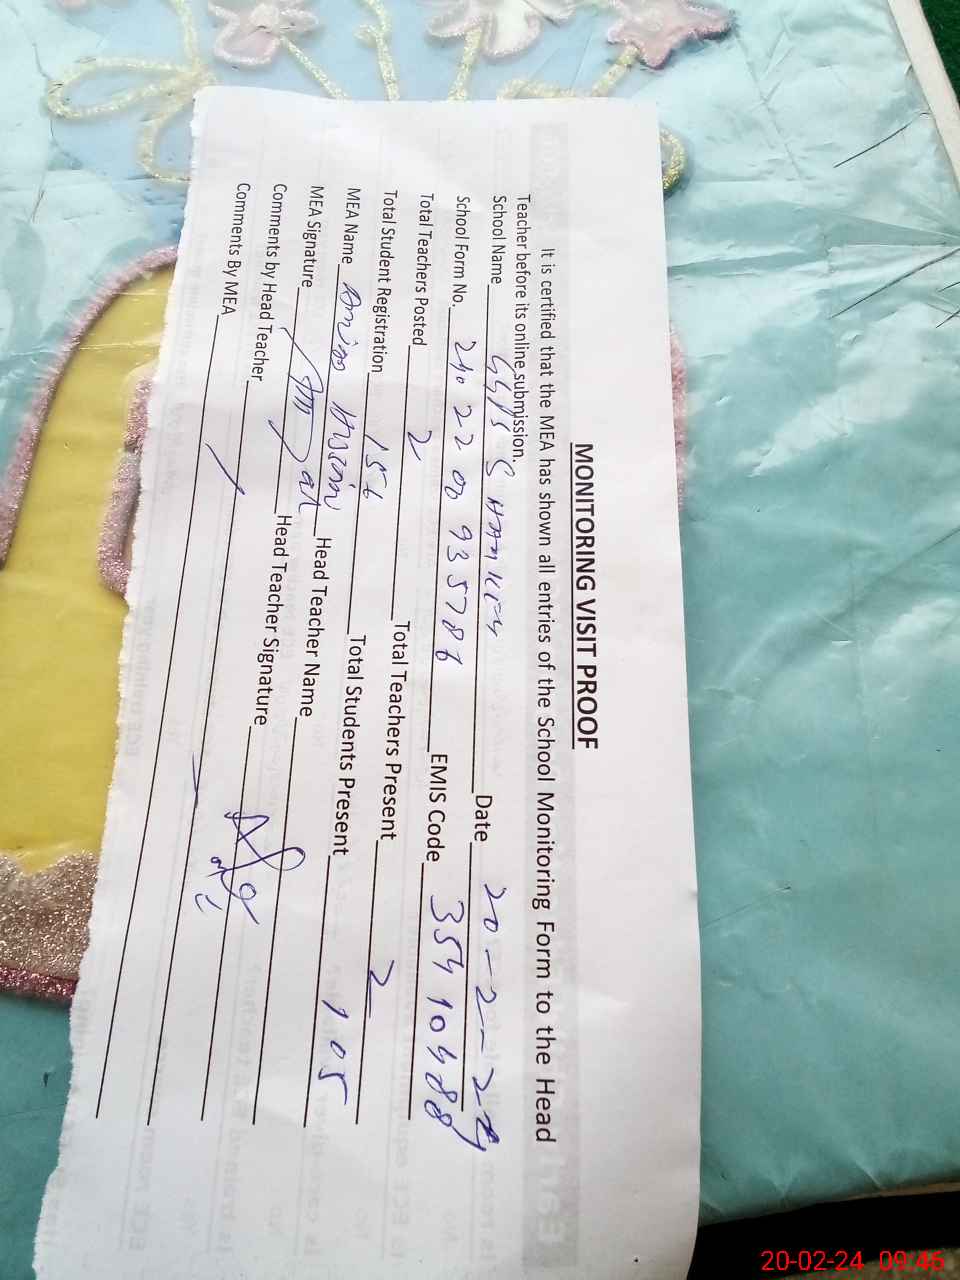 MONITORING VISIT PROOF
It is certified that the MEA has shown all entries of the School Monitoring Form to the Head
Teacher before its online submission.
School Name GGPS Date 20-2-24
School Form No. 24022 00 935786 EMIS Code 35410488
Total Teachers Posted 2 Total Teachers Present 2
Total Student Registration 156 Total Students Present 105
MEA Name Hussain Head Teacher Name
MEA Signature Head Teacher Signature
Comments by Head Teacher
Comments By MEA
20-02-24 09:46